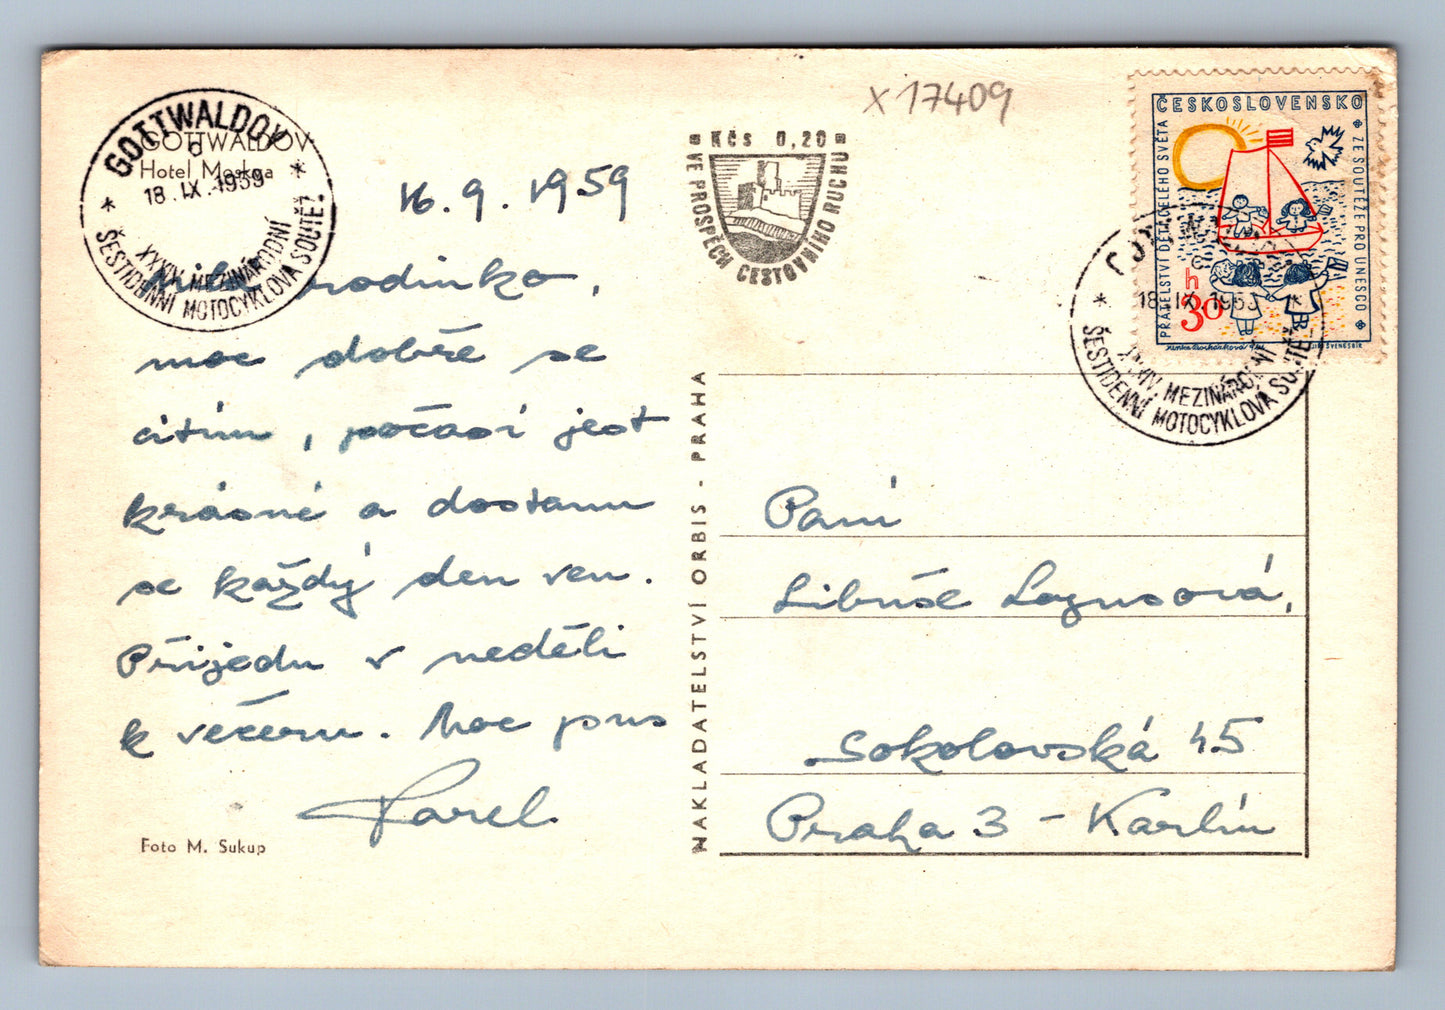 GOTTWALDOV
Hotel Moskva
GOTTWALDOV
18.IX.1959
XXXIV. MEZINÁRODNÍ
ŠESTIDENNÍ MOTOCYKLOVÁ SOUTĚŽ
16.9.1959
Milá rodinko,
moc dobře se
cítím, počasí jest
krásné a dostanu
se každý den ven.
Přijedu v neděli
k večeru. Moc pus
Karel
Foto M. Sukup
x 17409
Kčs 0,20
VE PROSPĚCH CESTOVNÍHO RUCHU
NAKLADATELSTVÍ ORBIS - PRAHA
ČESKOSLOVENSKO
PŘÁTELSTVÍ DĚTÍ CELÉHO SVĚTA
ZE SOUTĚŽE PRO UNESCO
h
30
18.IX.1959
XXXIV MEZINÁRODNÍ
ŠESTIDENNÍ MOTOCYKLOVÁ SOUTĚŽ
Paní
Libuše Lagusová,
Sokolovská 45
Praha 3 - Karlín